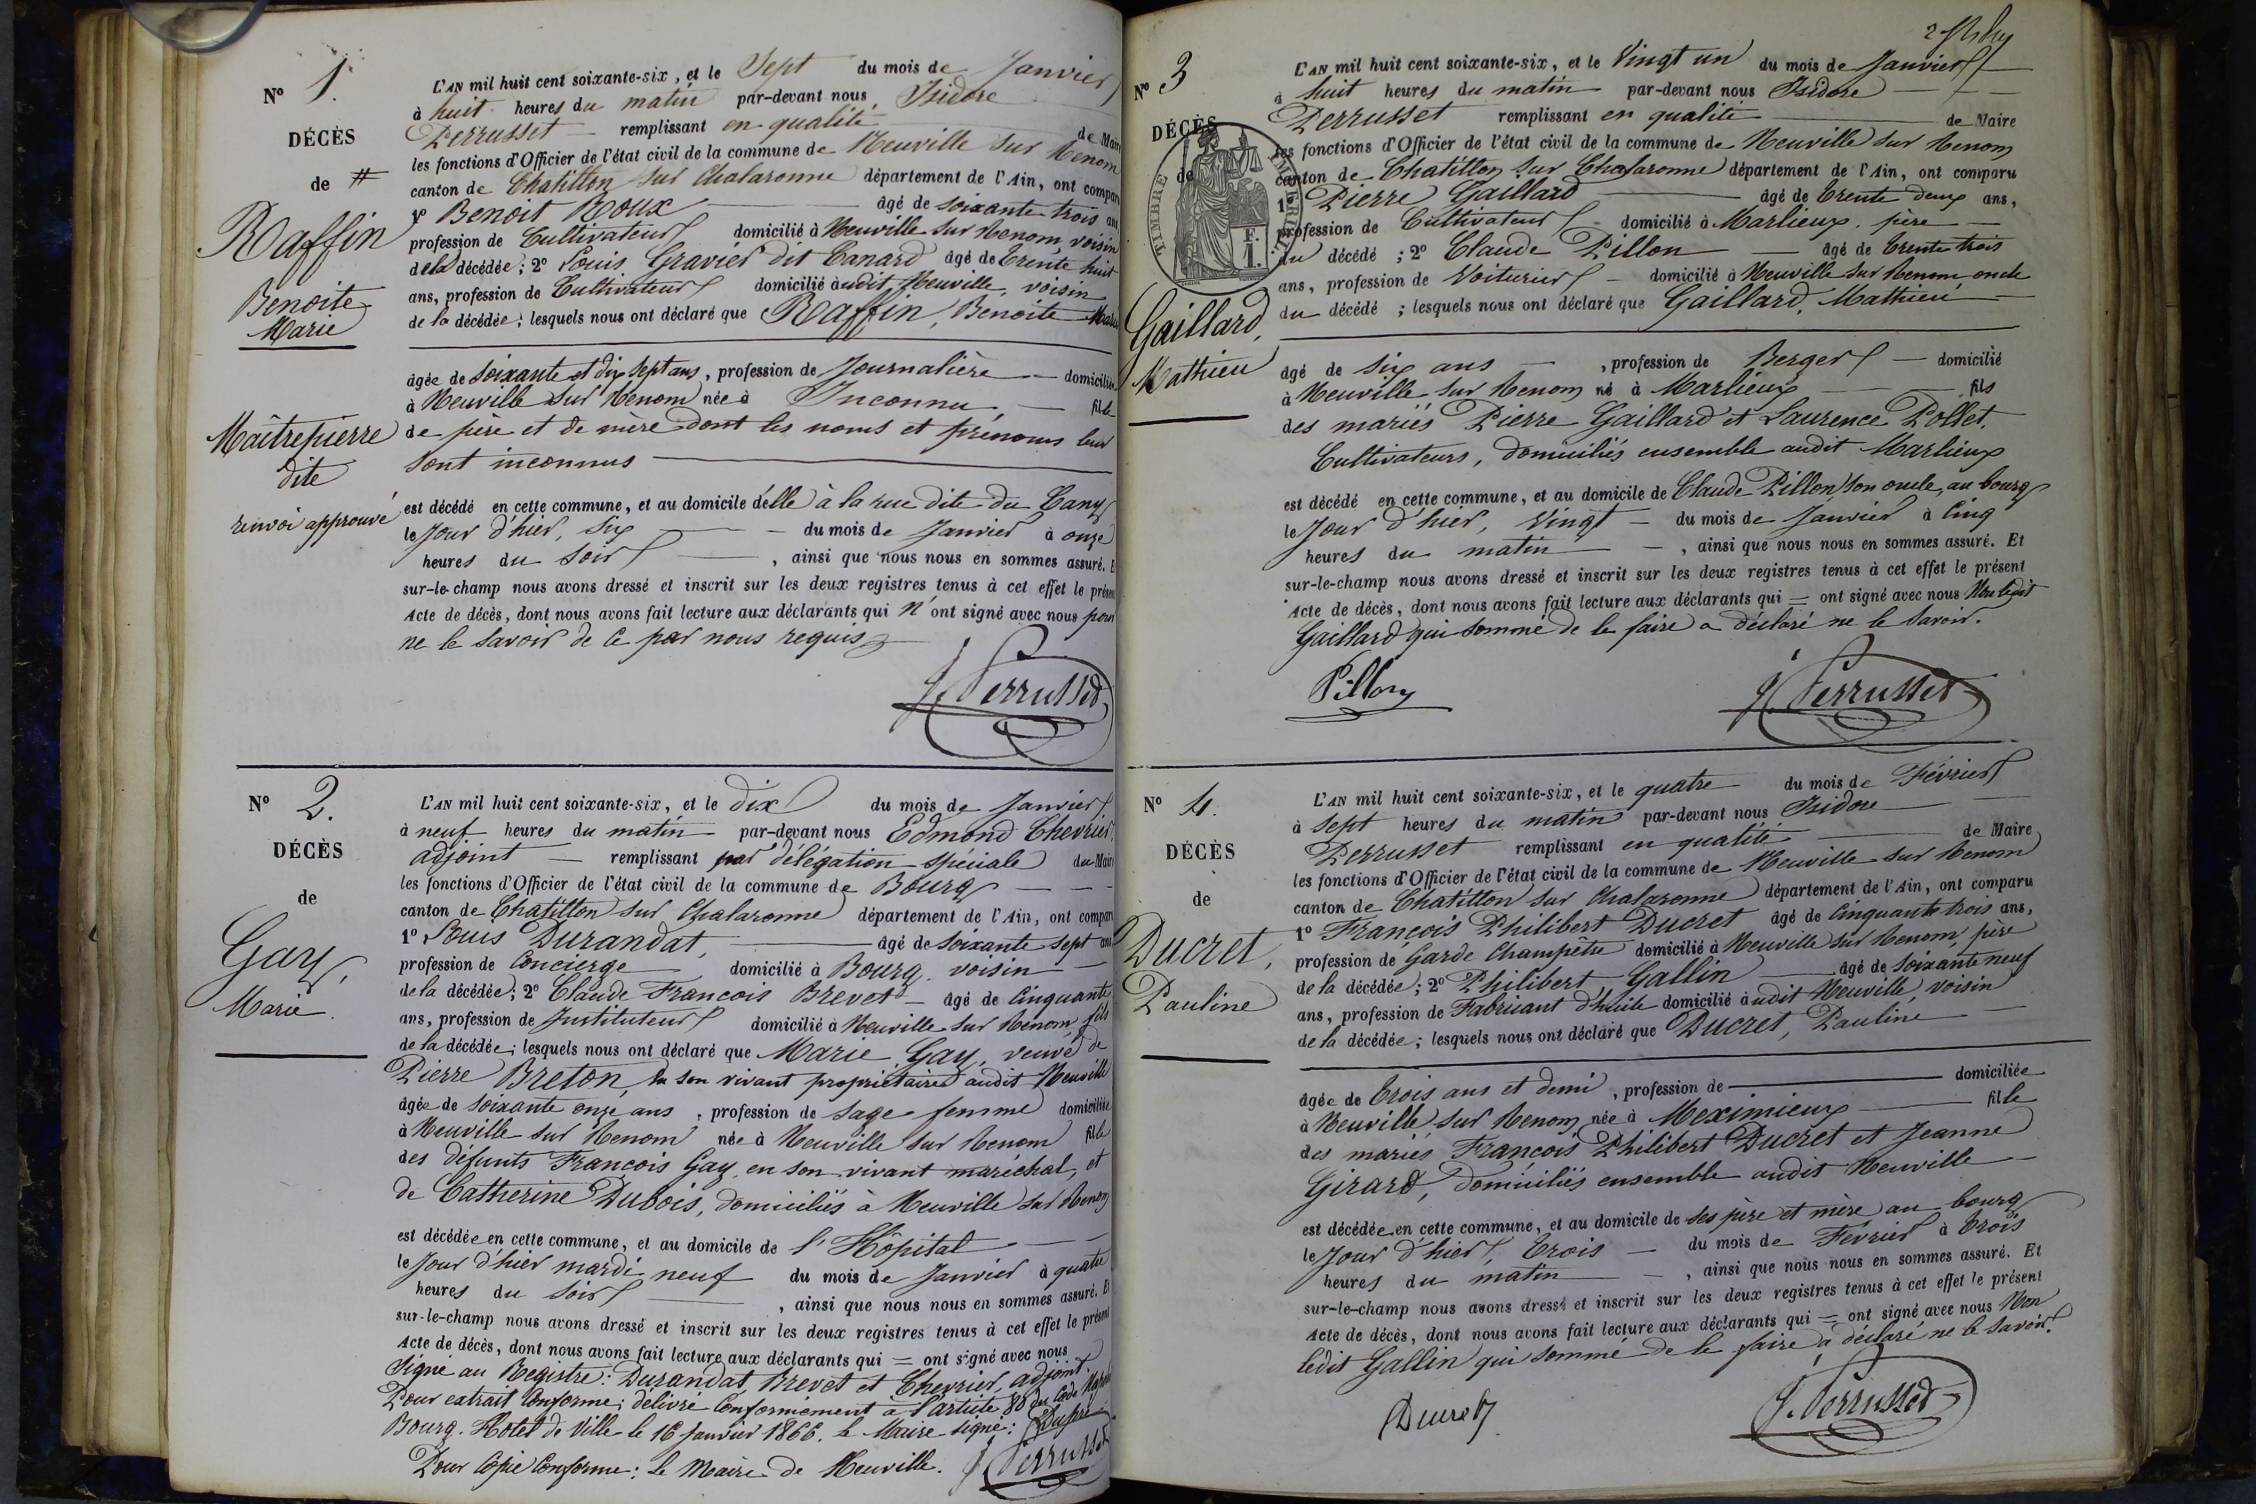 N° 1.
DÉCÈS
de #
Raffin
Benoite
Marie
Maîtrepierre
dite
renvoi approuvé
L'AN mil huit cent soixante-six, et le Sept du mois de Janvier
à huit heures du matin par-devant nous Isidore
Perrusset remplissant en qualité de Mair
les fonctions d'Officier de l'état civil de la commune de Neuville sur Renom
canton de Chatillon sur Chalaronne département de l'Ain, ont compar
1° Benoit Roux âgé de soixante trois ans
profession de Cultivateur domicilié à Neuville sur Renom, voisin
de la décédée; 2° Louis Gravier dit Canard âgé de trente huit
ans, profession de Cultivateur domicilié audit Neuville, voisin
de la décédée; lesquels nous ont déclaré que Raffin, Benoite Marie
âgée de soixante et dix sept ans, profession de Journalière domiciliée
à Neuville sur Renom née à Inconnu fille
de père et de mère dont les noms et prénoms leur
sont inconnus
est décédé en cette commune, et au domicile d'elle à la rue dite du
le Jour d'hier, six du mois de Janvier à onze
heures du soir, ainsi que nous nous en sommes assuré. E
sur-le-champ nous avons dressé et inscrit sur les deux registres tenus à cet effet le présen
Acte de décès, dont nous avons fait lecture aux déclarants qui n'ont signé avec nous pour
ne le savoir de ce par nous requis
J. Perrusset
N° 2.
DÉCÈS
de
Gay,
Marie.
L'AN mil huit cent soixante-six, et le dix du mois de Janvier
à neuf heures du matin par-devant nous Edmond Chevrier,
adjoint remplissant par délégation spéciale du Mair
les fonctions d'Officier de l'état civil de la commune de Bourg
canton de Chatillon sur Chalaronne département de l'Ain, ont compar
1° Louis Durandat, âgé de soixante sept ans
profession de Concierge domicilié à Bourg, voisin
de la décédée; 2° Claude François Brevet âgé de cinquante
ans, profession de Instituteur domicilié à Neuville sur Renom, fils
de la décédée; lesquels nous ont déclaré que Marie Gay, veuve de
Pierre Breton, en son vivant propriétaire audit Neuville
âgée de soixante onze ans, profession de sage femme domiciliée
à Neuville sur Renom née à Neuville sur Renom fille
des défunts François Gay, en son vivant maréchal, et
de Catherine Dubois, domiciliés à Neuville sur Renom
est décédée en cette commune, et au domicile de l'Hôpital
le Jour d'hier mardi neuf du mois de Janvier à quatre
heures du soir, ainsi que nous nous en sommes assuré. E
sur-le-champ nous avons dressé et inscrit sur les deux registres tenus à cet effet le présent
Acte de décès, dont nous avons fait lecture aux déclarants qui = ont signé avec nous
Signé au Registre: Durandat, Brevet et Chevrier, adjoint.
Pour extrait Conforme, délivré Conformément à l'article 80 du Code
Bourg. Hotel de Ville le 16 Janvier 1866. le Maire signé:
Pour Copie Conforme: Le Maire de Neuville. J. Perrusset
N° 3
DÉCÈS
de
TIMBRE IMPERIAL
F.
1.
Gaillard,
Mathieu
L'AN mil huit cent soixante-six, et le Vingt un du mois de Janvier
à huit heures du matin par-devant nous Isidore
Perrusset remplissant en qualité de Maire
les fonctions d'Officier de l'état civil de la commune de Neuville sur Renom
canton de Chatillon sur Chalaronne département de l'Ain, ont comparu
1° Pierre Gaillard âgé de trente deux ans,
profession de Cultivateur domicilié à Marlieux. père
du décédé; 2° Claude Pillon âgé de trente trois
ans, profession de Voiturier domicilié à Neuville sur Renom, oncle
du décédé; lesquels nous ont déclaré que Gaillard, Mathieu
âgé de six ans, profession de Berger domicilié
à Neuville sur Renom né à Marlieux fils
des mariés Pierre Gaillard et Laurence Pollet,
Cultivateurs, domiciliés ensemble audit Marlieux
est décédé en cette commune, et au domicile de Claude Pillon son oncle, au bourg
le Jour d'hier, vingt du mois de Janvier à cinq
heures du matin, ainsi que nous nous en sommes assuré. Et
sur-le-champ nous avons dressé et inscrit sur les deux registres tenus à cet effet le présent
Acte de décès, dont nous avons fait lecture aux déclarants qui = ont signé avec nous Non ledit
Gaillard qui sommé de le faire a déclaré ne le savoir.
Pillon J. Perrusset
N° 4.
DÉCÈS
de
Ducret,
Pauline
L'AN mil huit cent soixante-six, et le quatre du mois de Février
à sept heures du matin par-devant nous Isidore
Perrusset remplissant en qualité de Maire
les fonctions d'Officier de l'état civil de la commune de Neuville sur Renom
canton de Chatillon sur Chalaronne département de l'Ain, ont comparu
1° François Philibert Ducret âgé de cinquante trois ans,
profession de Garde Champêtre domicilié à Neuville sur Renom, père
de la décédée; 2° Philibert Gallin âgé de soixante neuf
ans, profession de Fabricant d'huile domicilié audit Neuville, voisin
de la décédée; lesquels nous ont déclaré que Ducret, Pauline
âgée de trois ans et demi, profession de domiciliée
à Neuville sur Renom née à Meximieux fille
des mariés François Philibert Ducret et Jeanne
Girard, domiciliés ensemble audit Neuville
est décédée en cette commune, et au domicile de ses père et mère au bourg
le Jour d'hier, trois du mois de Février à trois
heures du matin, ainsi que nous nous en sommes assuré. Et
sur-le-champ nous avons dressé et inscrit sur les deux registres tenus à cet effet le présent
Acte de décès, dont nous avons fait lecture aux déclarants qui = ont signé avec nous Non
ledit Gallin qui sommé de le faire a déclaré ne le savoir.
Ducret J. Perrusset